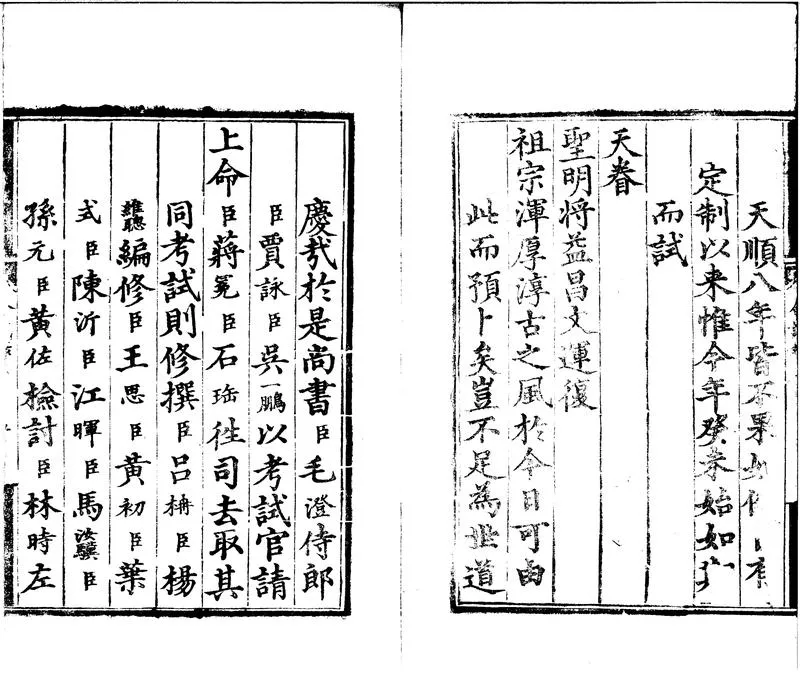 天順八年皆不果
定制以来惟今年癸未始如
而試
天眷
聖明将益昌文運復
祖宗渾厚淳古之風於今日可由
此而預卜矣豈不足為世道
慶㢤於是尚書臣毛澄侍郎
臣賈詠臣吳一鵬以考試官請
上命臣蔣冕臣石珤徃司去取其
同考試則修撰臣吕柟臣楊
維聰編修臣王思臣黄初臣葉
式臣陳沂臣江暉臣馬汝驥臣
孫元臣黄佐檢討臣林時左